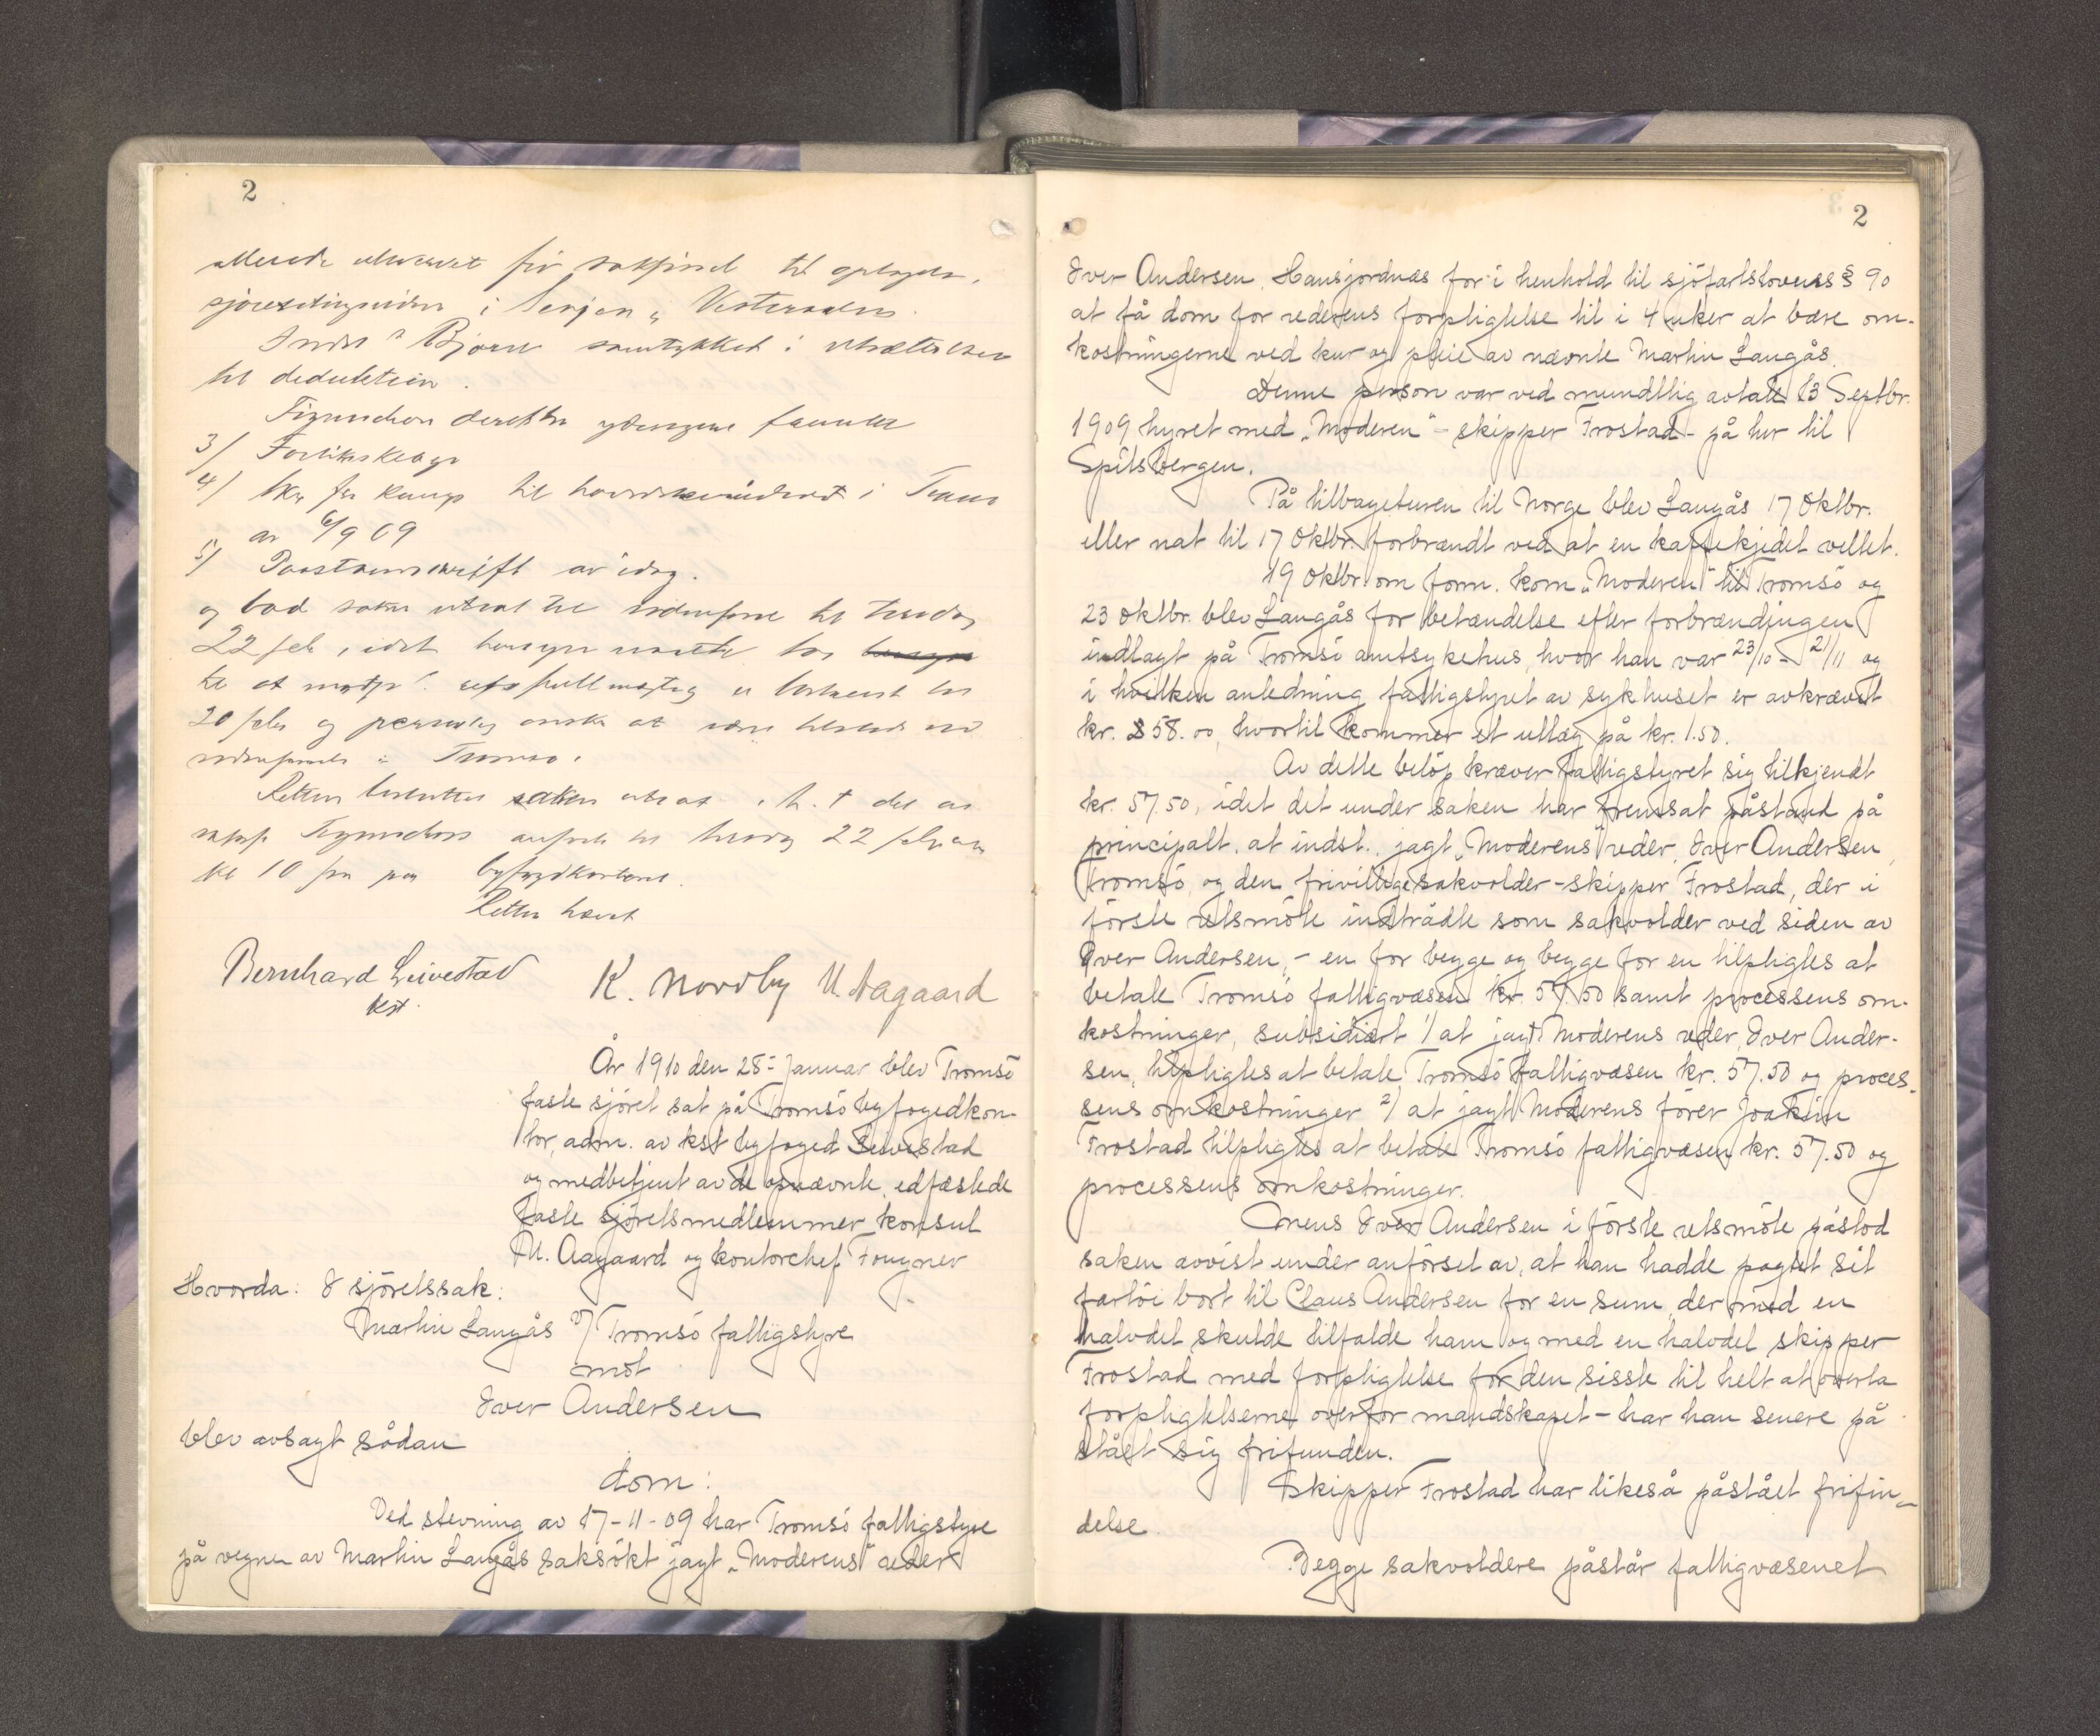 2
allerede utnævnt for saksförsel til oplysn.
sjøretsdistrikter i Senjen & Vesteraalen
Indst. Bjørn samtykket i utsættelsen
til deduktion.
derefter
3/ Forliksklage
4/ til i Troms
av 6/9 09
5/ Paastandsskrift av idag.
og bad saken utsat til vidneførsel til tirsdag
22 feb, idet hensyn
til at er bortreist til
20 febr og personlig ønsker at være tilstede ved
vidneførsel i Tromsø.
Retten besluttet saken utsat i h. t. det av
sakf. anførte til tirsdag 22 februar
kl 10 fm paa byfogdkontoret.
Retten hævet
Bernhard Leivestad K. Nordby M. Aagaard
kst.
År 1910 den 28- Januar blev Tromsö
faste sjöret sat på Tromsö byfogedkon-
tor, adm. av kst byfoged Leivestad
og medbetjent av de opnævnte, edfæstede
faste sjöretsmedlemmer konsul
M. Aagaard og kontorchef Fougner
Hvorda: I sjöretssak:
Martin Langås v/ Tromsö fattigstyre
mot
Iver Andersen
blev avsagt sådan
dom:
Ved stevning av 17-11-09 har Tromsö fattigstyre
på vegne av Martin Langås saksökt jagt „Moderens" reder
2
Iver Andersen, Hansjordnæs for i henhold til sjöfartslovens § 90
at få dom for rederens forpligtelse til i 4 uker at bære om-
kostningerne ved kur og pleie av nævnte Martin Langås.
Denne person var ved mundtlig avtale 13 Septbr.
1909 hyret med „Moderen" - skipper Frostad - på tur til
Spitsbergen.
På tilbageturen til Norge blev Langås 17 Oktbr.
eller nat til 17 Oktbr. forbrændt ved at en kaffekjedel veltet.
19 Oktbr om form. kom „Moderen" til Tromsö og
23 Oktbr. blev Langås for betændelse efter forbrændingen
indlagt på Tromsö amtsykehus, hvor han var 23/10 - 21/11 og
i hvilken anledning fattigstyret av sykhuset er avkrævet
kr. 58.00, hvortil kommer et utlæg på kr. 1.50.
Av dette belöp kræver fattigstyret sig tilkjendt
kr. 57.50, idet det under saken har fremsat påstand på
principalt, at indst., jagt „Moderens" reder, Iver Andersen,
Tromsö, og den frivillige sakvolder - skipper Frostad, der i
förste retsmöte indtrådte som sakvolder ved siden av
Iver Andersen, - en for begge og begge for en tilpligtes at
betale Tromsö fattigvæsen kr. 57.50 samt processens om-
kostninger, subsidiært 1/ at jagt Moderens reder, Iver Ander-
sen, tilpligtes at betale Tromsö fattigvæsen kr. 57.50 og proces-
sens omkostninger 2/ at jagt Moderens förer Joakim
Frostad tilpligtes at betale Tromsö fattigvæsen kr. 57.50 og
processens omkostninger.
Mens Iver Andersen i förste retsmöte påstod
saken avvist under anförsel av, at han hadde pagtet sit
fartöi bort til Claus Andersen for en sum, der med en
halvdel skulde tilfalde ham og med en halvdel skipper
Frostad med forpligtelse for den sisste til helt at overta
forpligtelserne overfor mandskapet - har han senere på
ståt sig frifunden.
Skipper Frostad har likeså påstået frifin-
delse.
Begge sakvoldere påstår fattigvæsenet